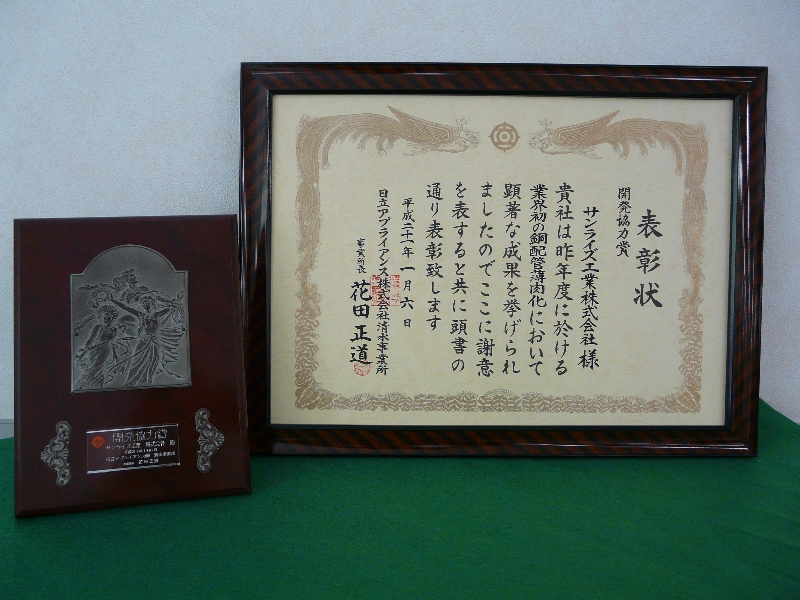 表彰状
開発協力賞
サンライズ工業株式会社 様
貴社は昨年度に於ける
業界初の銅配管薄肉化において
顕著な成果を挙げられ
ましたのでここに謝意
を表すると共に頭書の
通り表彰致します
平成二十一年一月六日
日立アプライアンス株式会社清水事業所
事業所長 花田正道
開発協力賞
サンライズ工業 株式会社 殿